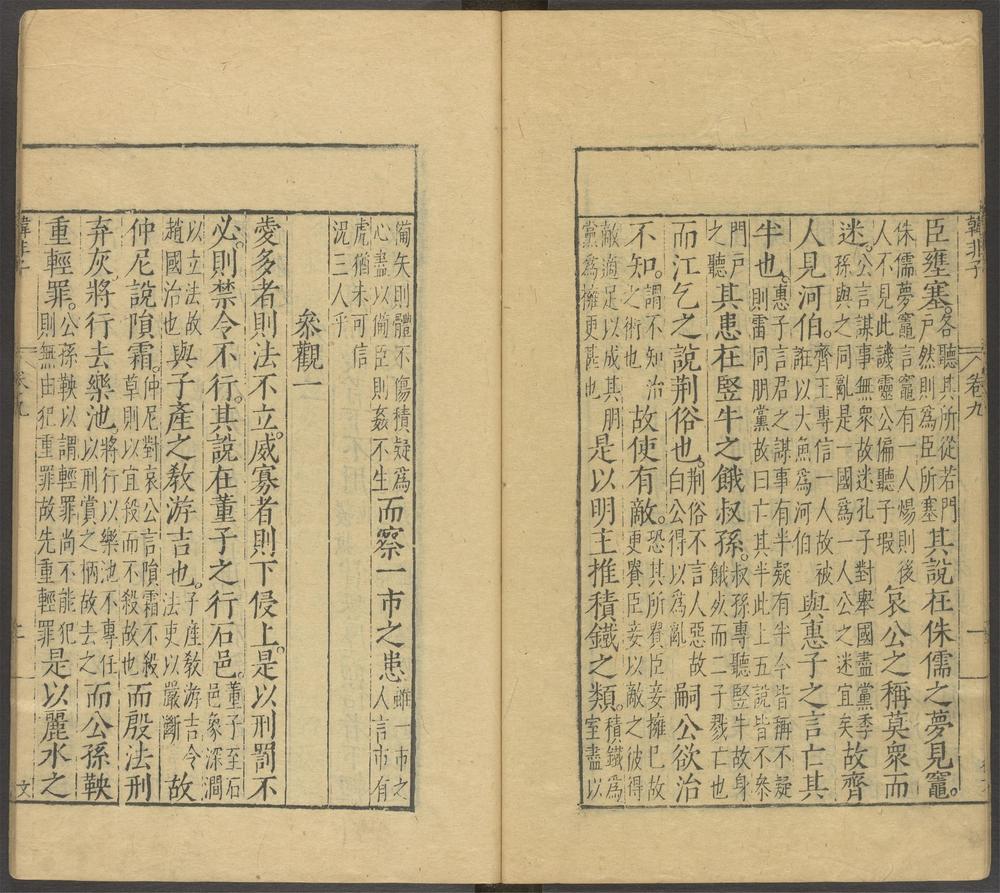 韓非子 卷九 一
臣壅塞。各聽其所從若門戶然則為臣所塞其說在侏儒之夢見竈。
侏儒夢竈言竈有一人煬則後人不見此譏靈公偏聽子瑕哀公之稱莫衆而
迷。公言謀事無衆故迷孔子對舉國盡黨季孫與之同亂是一國為一人公之迷宜矣故齊
人見河伯。齊王專信一人故被誰以大魚為河伯與惠子之言亡其
半也。惠子言君之謀事有半疑有半今皆稱不疑則雷同朋黨故曰亡其半此上五說皆不叅
門戶之聽其患在竪牛之餓叔孫。叔孫專聽竪牛故身餓死而二子戮亡也
而江乞之說荆俗也。荆俗不言人惡故白公得以為亂嗣公欲治
不知。謂不知治之術也故使有敵。恐其所貴臣妾擁已故更貴臣妾以敵之彼得
敵適足以成其朋黨為擁更甚也是以明主推積鐵之類。積鐵為室盡以
備矢則體不傷積疑為心盡以備臣則姦不生而察一市之患雖一市之人言市有
虎猶未可信況三人乎
叅觀一
愛多者則法不立。威寡者則下侵上。是以刑罰不
必。則禁令不行。其說在董子之行石邑。董子至石邑象深澗
以立法故趙國治也與子產之敎游吉也。子產敎游吉令法吏以嚴斷故
仲尼說隕霜。仲尼對哀公言隕霜不殺草則以宜殺而不殺故也而殷法刑
弃灰。將行去樂池。將行以樂池不專任以刑賞之柄故去之而公孫鞅
重輕罪。公孫鞅以謂輕罪尚不能犯則無由犯重罪故先重輕罪是以麗水之
韓非子 卷九 二 文